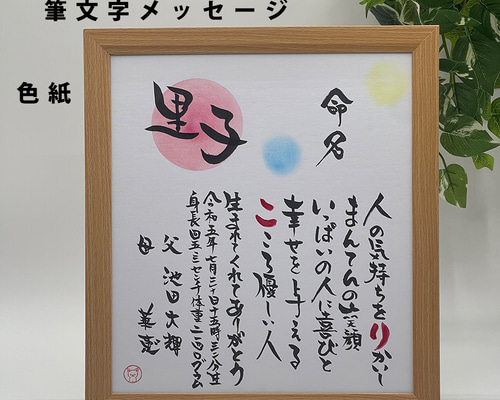 筆文字メッセージ
色紙
命名
里子
人の気持ちをりかいし
まんてんの笑顔
いっぱいの人に喜びと
幸せを与える
こころ優しい人
生まれてくれてありがとう
令和五年七月二十日十五時三十分生
身長四五・三センチ体重二一四〇グラム
父 池田大輝
母